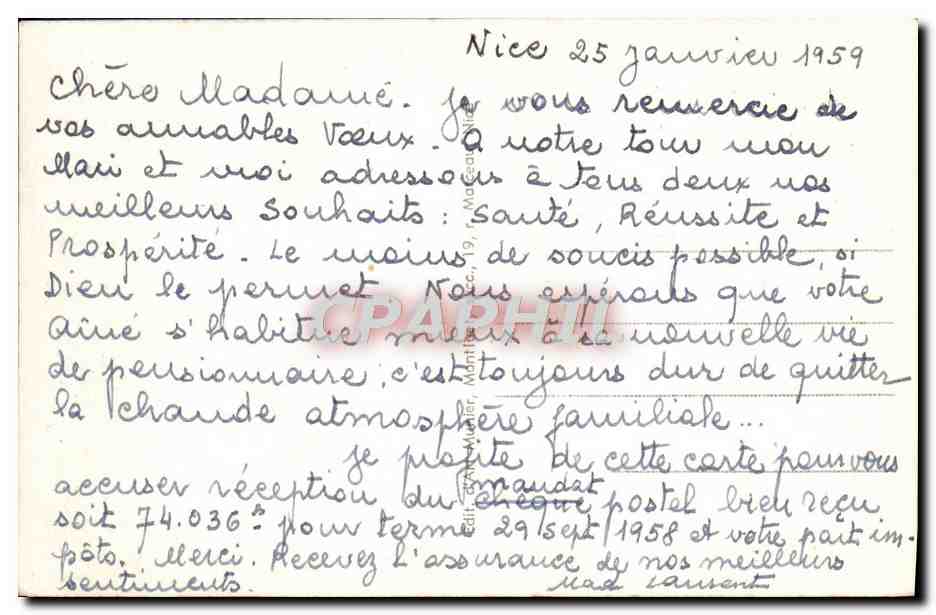 Nice 25 Janvier 1959
Chère Madame. Je vous remercie de
vos aimables Vœux. A notre tour mon
Mari et moi adressons à tous deux nos
meilleurs Souhaits : Santé, Réussite et
Prospérité. Le moins de soucis possible, si
Dieu le permet. Nous espérons que votre
aîné s'habitue mieux à sa nouvelle vie
de pensionnaire, c'est toujours dur de quitter
la chaude atmosphère familiale...
Je profite de cette carte pour vous
accuser réception du chèque mandat postal bien reçu
soit 74.036 pour terme 29 Sept 1958 et votre part im-
pôts. Merci. Recevez l'assurance de nos meilleurs
sentiments.
Mad Laurent
CPAPHIL
Edit. d'Art Munier, 19, r. Marceau, Nice